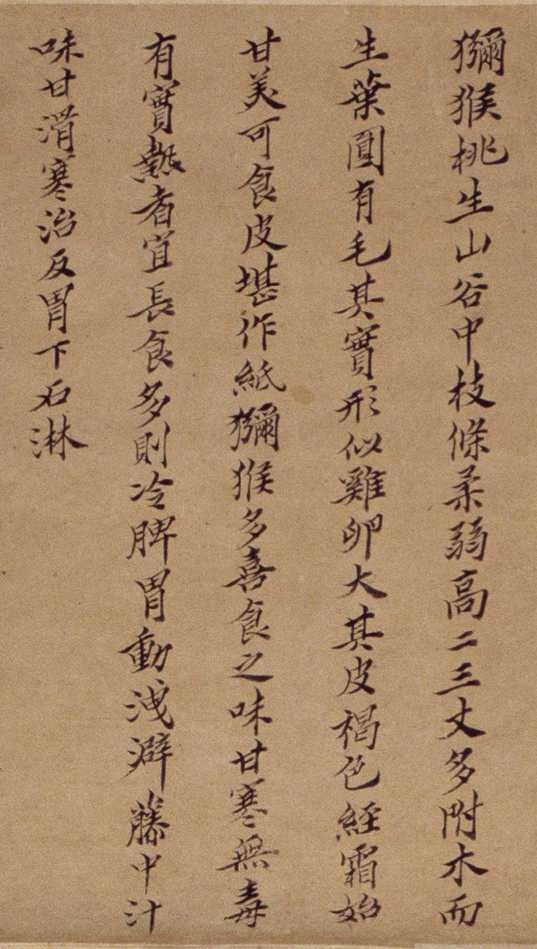 獼猴桃生山谷中枝條柔弱高二三丈多附木而
生葉圓有毛其實形似雞卵大其皮褐色經霜始
甘美可食皮堪作紙獼猴多喜食之味甘寒無毒
有實熱者宜長食多則冷脾胃動洩澼藤中汁
味甘滑寒治反胃下石淋